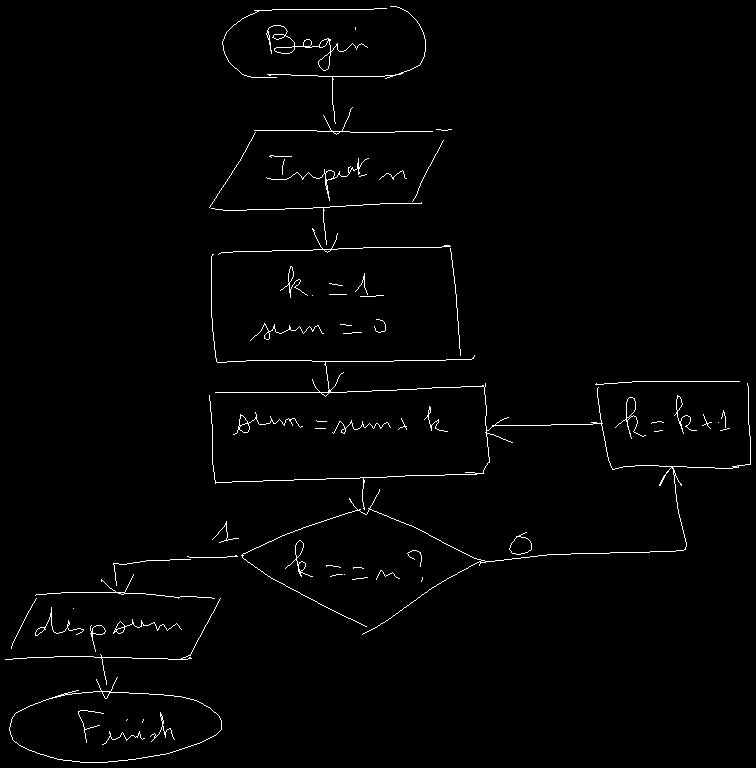 Begin
Input n
k = 1
sum = 0
sum = sum + k
k = k + 1
k == n?
1
0
disp sum
Finish